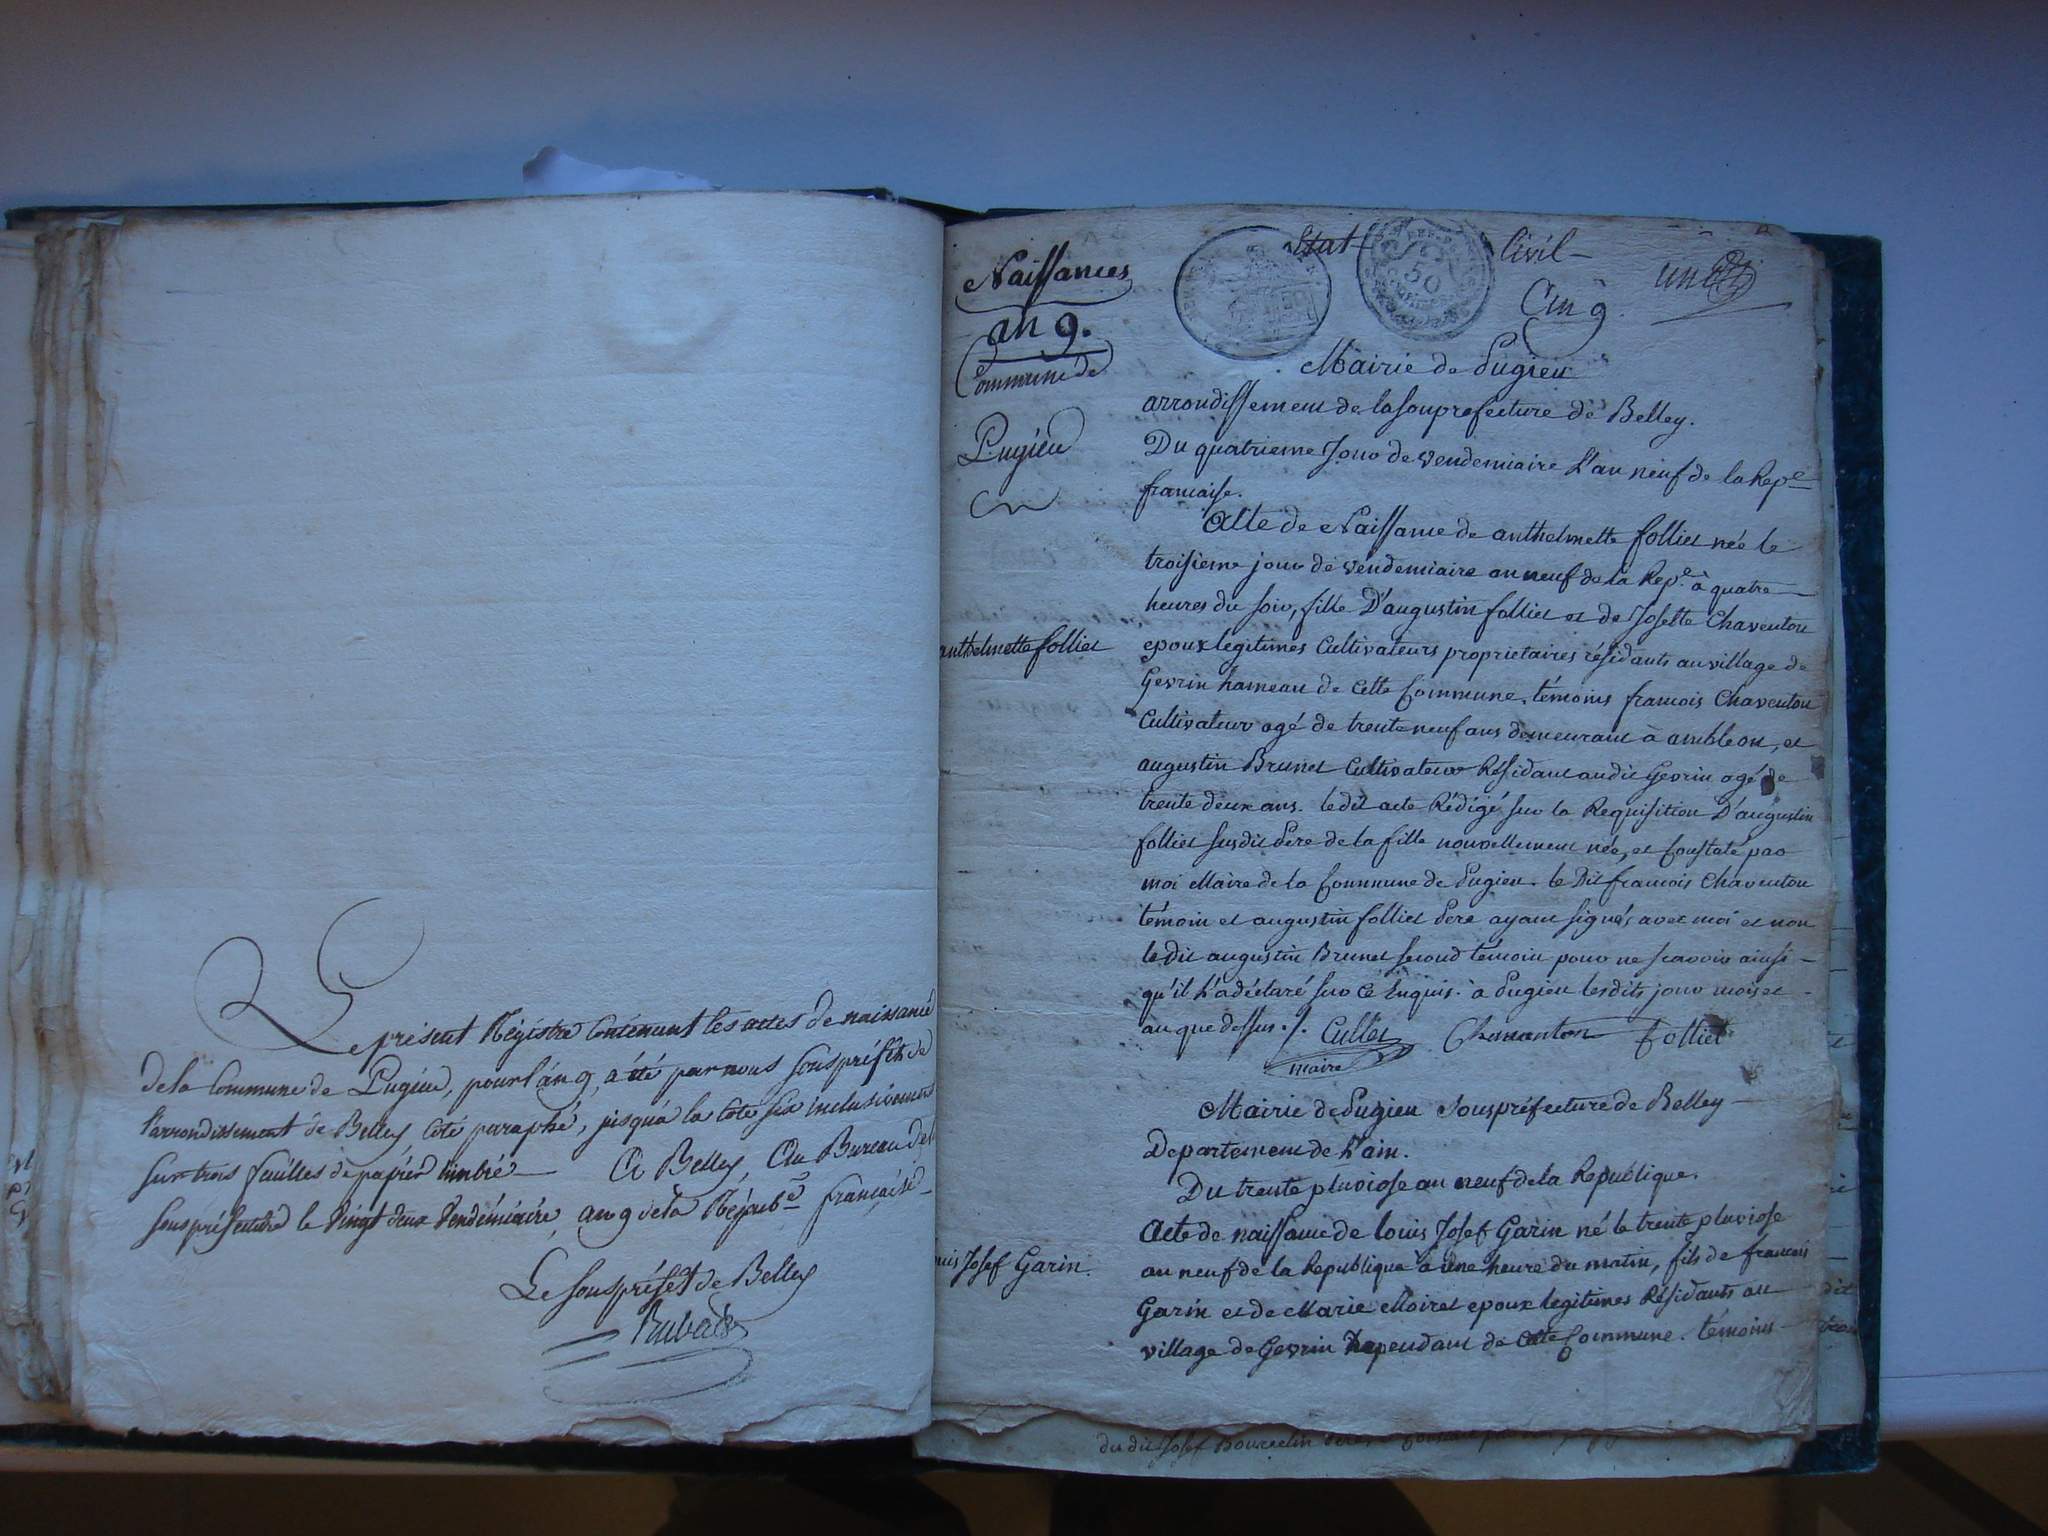 Le présent Régistre Contenant les actes de naissance
de la Commune de Pugieu, pour l'an 9, a été par nous Souspréfèt de
l'arrondissement de Belley Coté paraphé, jusqu'a la Cote Six inclusivement
Sur trois feuilles de papier timbré A Belley, Au Bureau de la
Souspréfecture le Vingt deux Vendémiaire, an 9 de la Répub.e française
Le Souspréfet de Belley
Naissances
an 9.
Commune de
Pugieu
Etat Civil
An 9.
un
REP. FRA.
50
Mairie de Pugieu
arrondissement de la Souprefecture de Belley.
Du quatrieme Jour de vendemiaire L'an neuf de la Rep.e
francaise.
Acte de Naissance de anthelmette folliet née le
troisieme jour de vendemiaire an neuf de la Rep.e à quatre
heures du soir, fille D'augustin folliet et de Josette Chaventon
anthelmette folliet
epoux legitimes Cultivateurs proprietaires résidants au village de
Gevrin hameau de Cette Commune. témoins francois Chaventon
Cultivateur agé de trente neuf ans demeurant à ambleon, et
augustin Brunet Cultivateur Résidant audit Gevrin agé de
trente deux ans. ledit acte Rédigé sur la Requisition D'augustin
folliet susdit Pere de la fille nouvellement née, et Constaté par
moi Maire de la Commune de Pugieu. le Dit francois Chaventon
témoin et augustin folliet Pere ayant signés avec moi et non
le dit augustin Brunet second témoin pour ne scavoir ainsi
qu'il L'a déclaré sur ce Enquis. à Pugieu lesdits jour mois et
an que dessus ./. Cullet Chavanton folliet
maire
Mairie de Pugieu Souspréfecture de Belley
Departement de L'ain.
Du trente pluviose an neuf de la Republique.
Acte de naissance de louis Josef Garin né le trente pluviose
an neuf de la Republique à une heure du matin, fils de francois
uis Josef Garin.
Garin et de Marie Moiret epoux legitimes Résidants au
village de Gevrin Dependant de cette Commune. témoins
du dit Josef